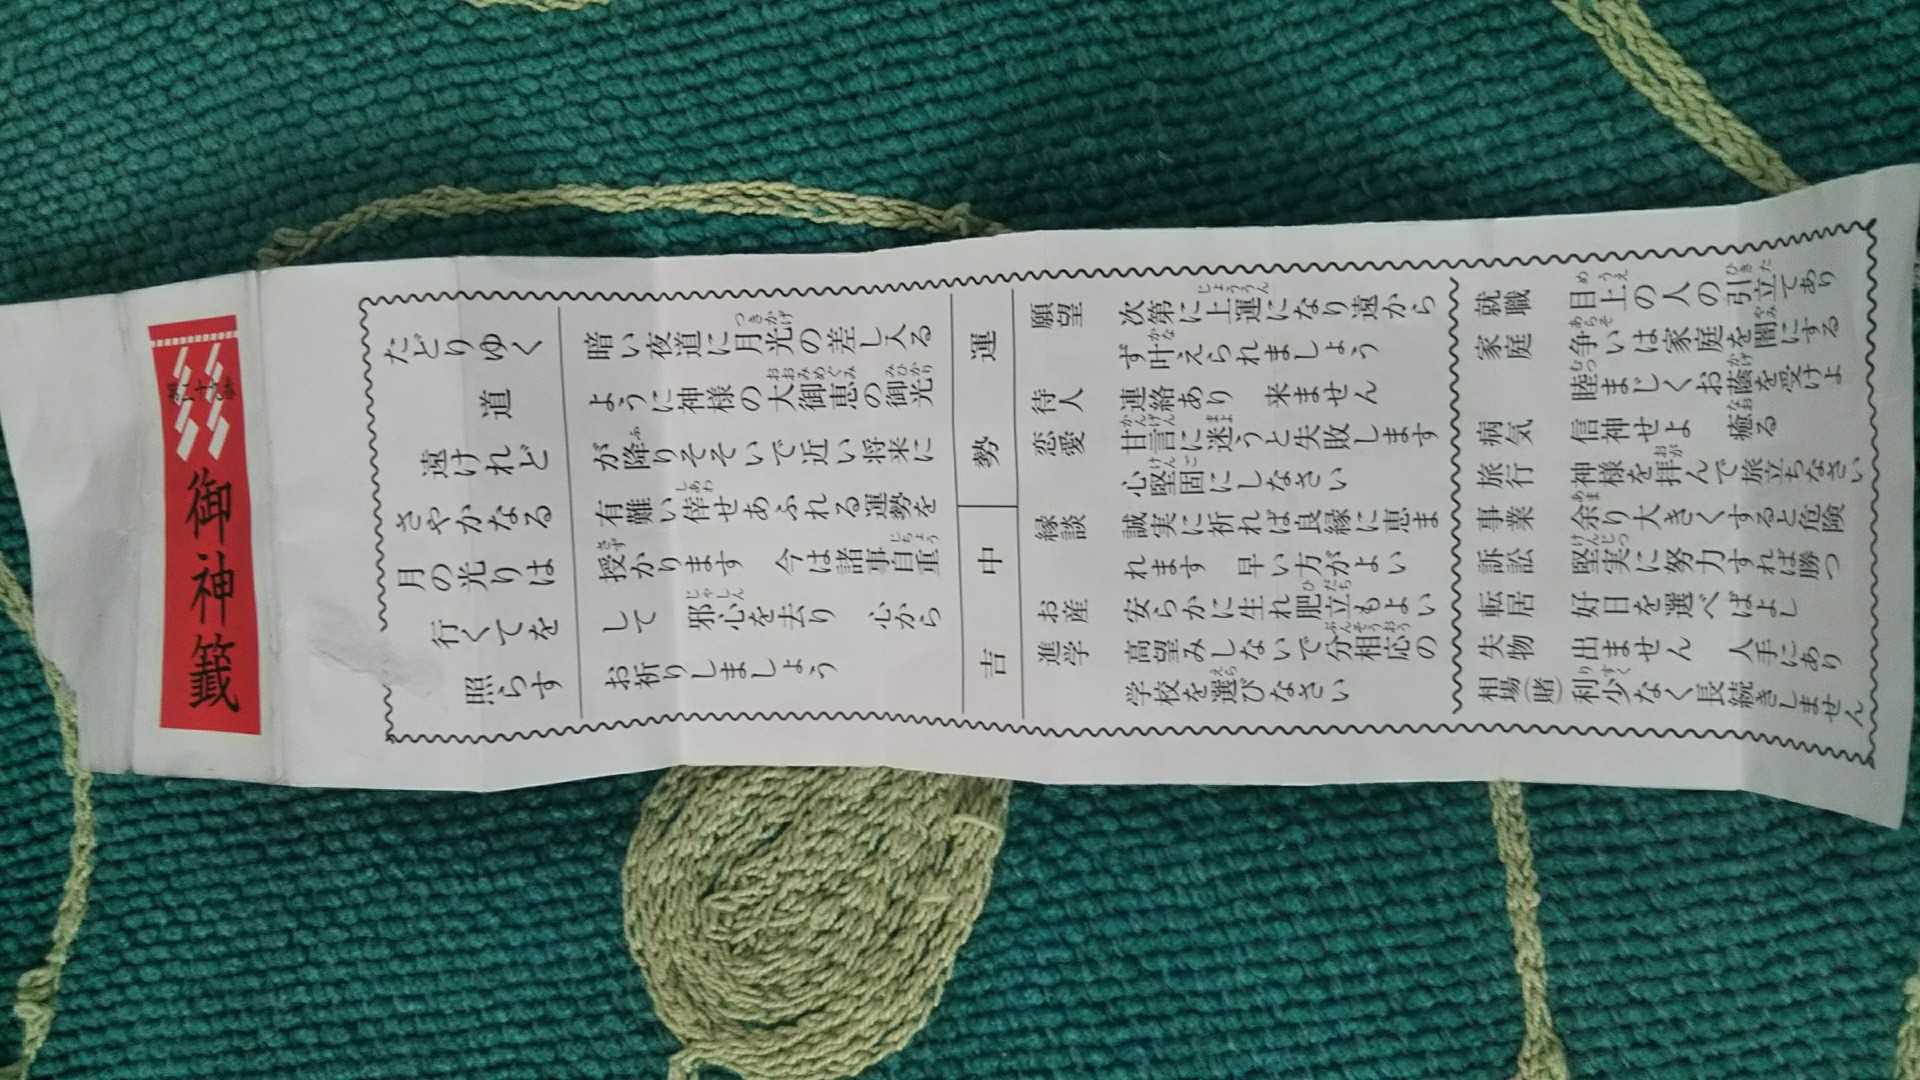 第二十九番
御神籤
たどりゆく
道
遠けれど
さやかなる
月の光りは
行くてを
照らす
暗い夜道に月光の差し入る
ように神様の大御恵の御光
が降りそそいで近い将来に
有難い倖せあふれる運勢を
授かります 今は諸事自重
して 邪心を去り 心から
お祈りしましょう
運勢 中吉
願望 次第に上運になり遠から
ず叶えられましょう
待人 連絡あり 来ません
恋愛 甘言に迷うと失敗します
心堅固にしなさい
縁談 誠実に祈れば良縁に恵ま
れます 早い方がよい
お産 安らかに生れ肥立もよい
進学 高望みしないで分相応の
学校を選びなさい
就職 目上の人の引立てあり
家庭 争いは家庭を闇にする
睦まじくお蔭を受けよ
病気 信神せよ 癒る
旅行 神様を拝んで旅立ちなさい
事業 余り大きくすると危険
訴訟 堅実に努力すれば勝つ
転居 好日を選べばよし
失物 出ません 人手にあり
相場(賭) 利少なく長続きしません